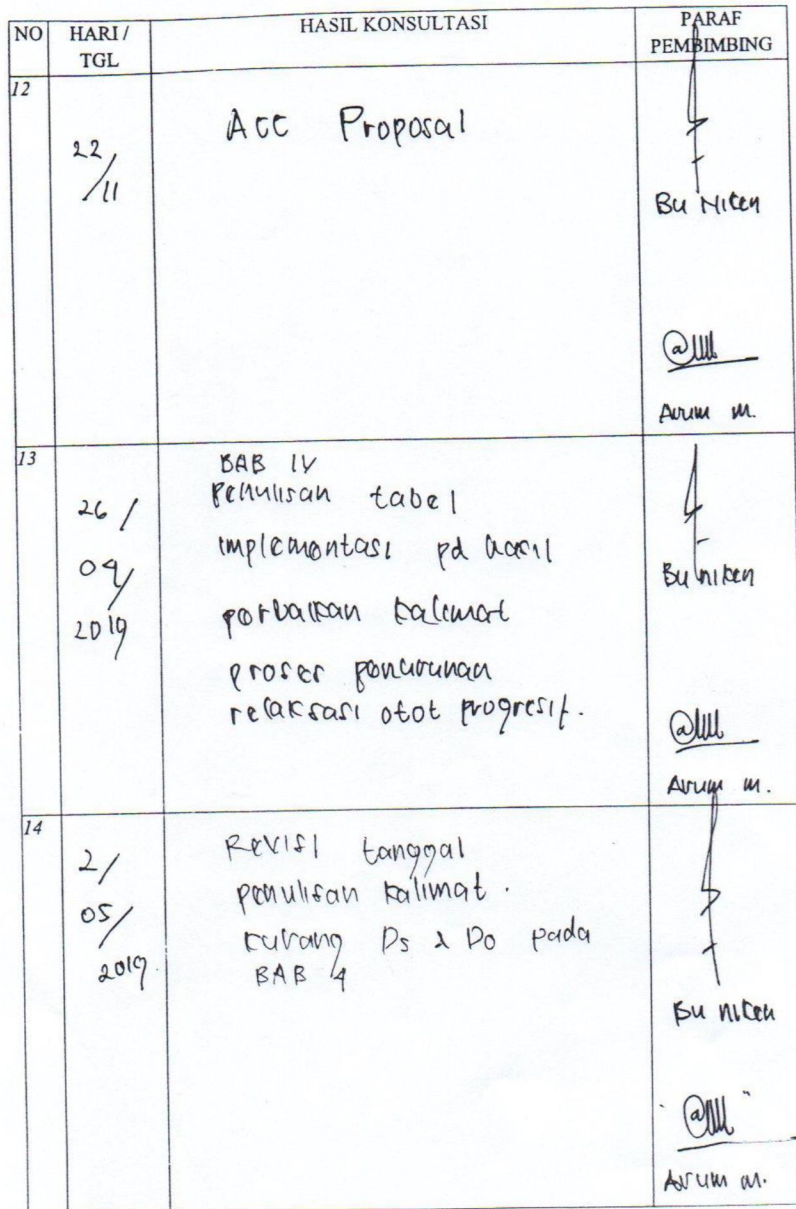 NO HARI / TGL HASIL KONSULTASI PARAF PEMBIMBING
12
22/11
Acc Proposal
Bu Niken
Arum M.
13
26/
04/
2019
BAB IV
Penulisan tabel
implementasi pd hasil
perbaikan kalimat
proses penurunan
relaksasi otot progresif.
Bu niken
Arum M.
14
2/
05/
2019
Revisi tanggal
penulisan kalimat.
kurang Ds & Do pada
BAB 4
Bu niken
Arum M.